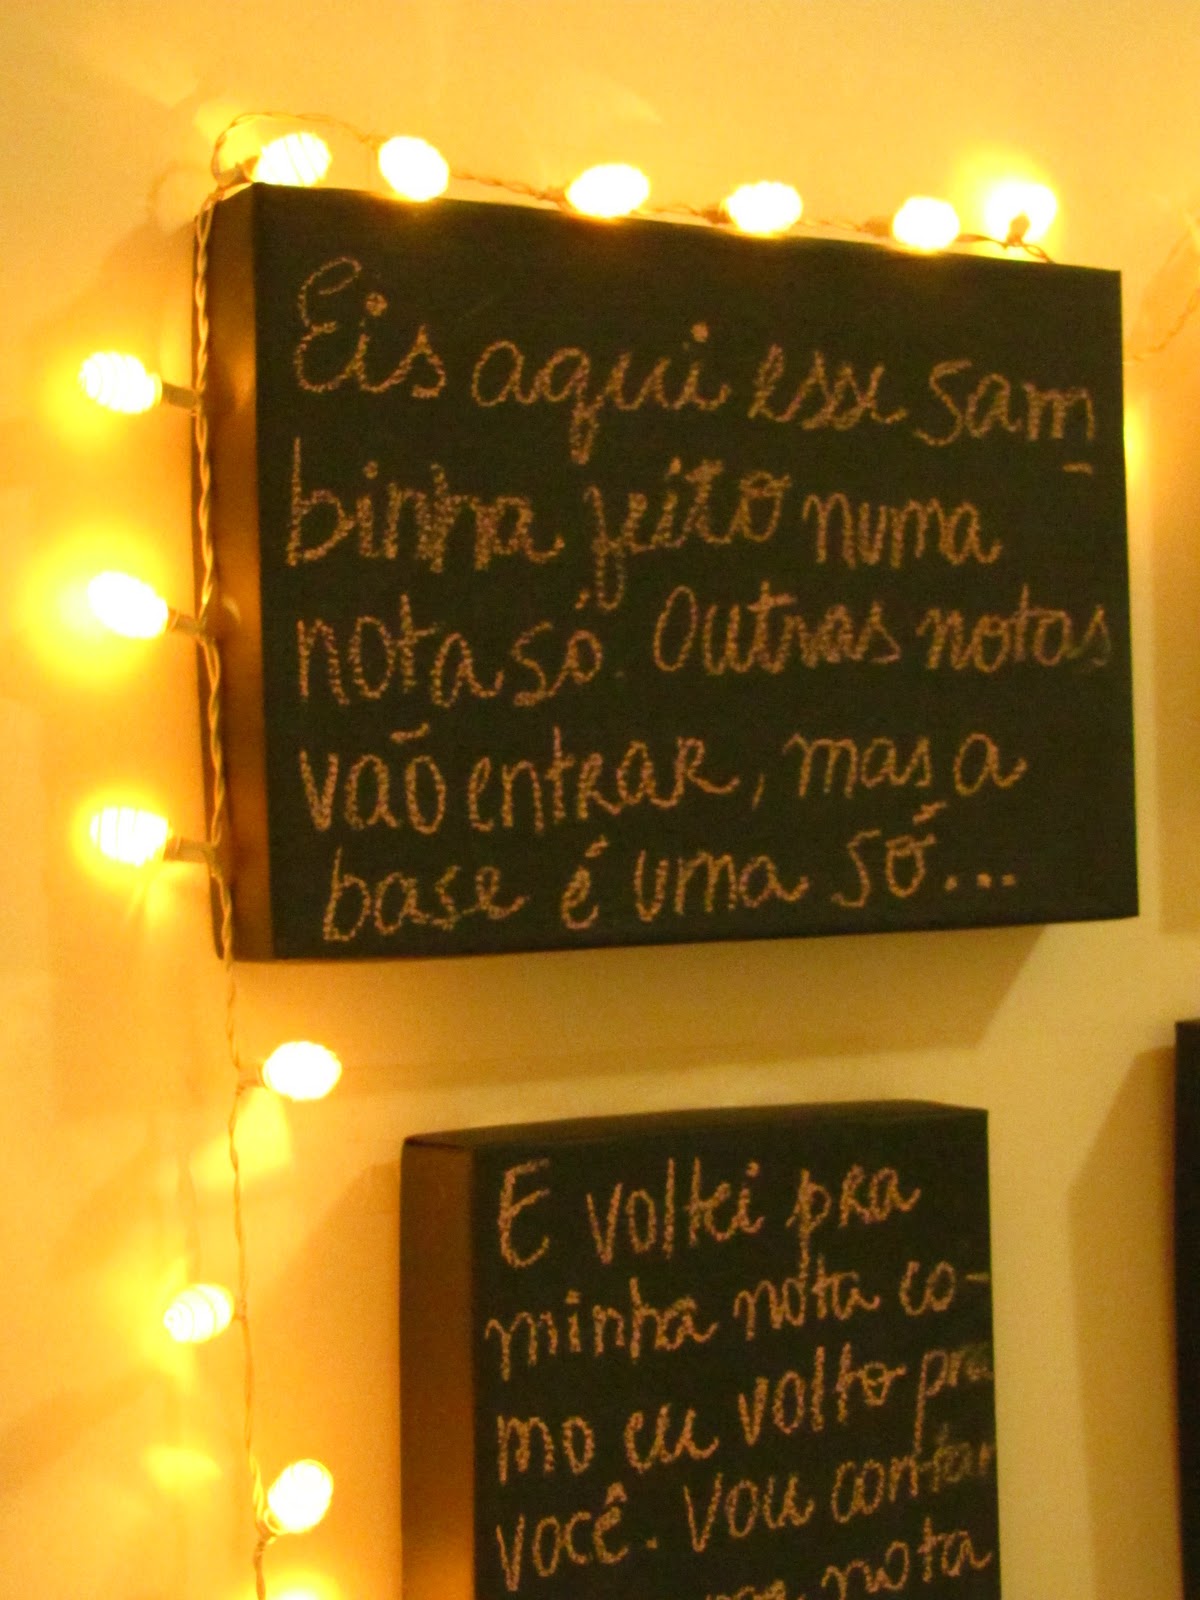 Eis aqui esse sam
binha feito numa
nota só. Outras notas
vão entrar, mas a
base é uma só...
E voltei pra
minha nota co-
mo eu volto pra
você. Vou contar
nota